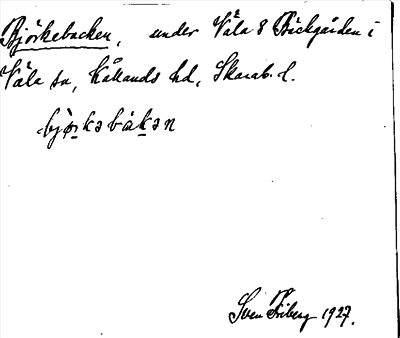 Björkebacken, under Väla 8 Bäckgården i
Väla sn, Kållands hd, Skarab. l.
bjø̀rkəbàkən
Sven Friberg 1927.